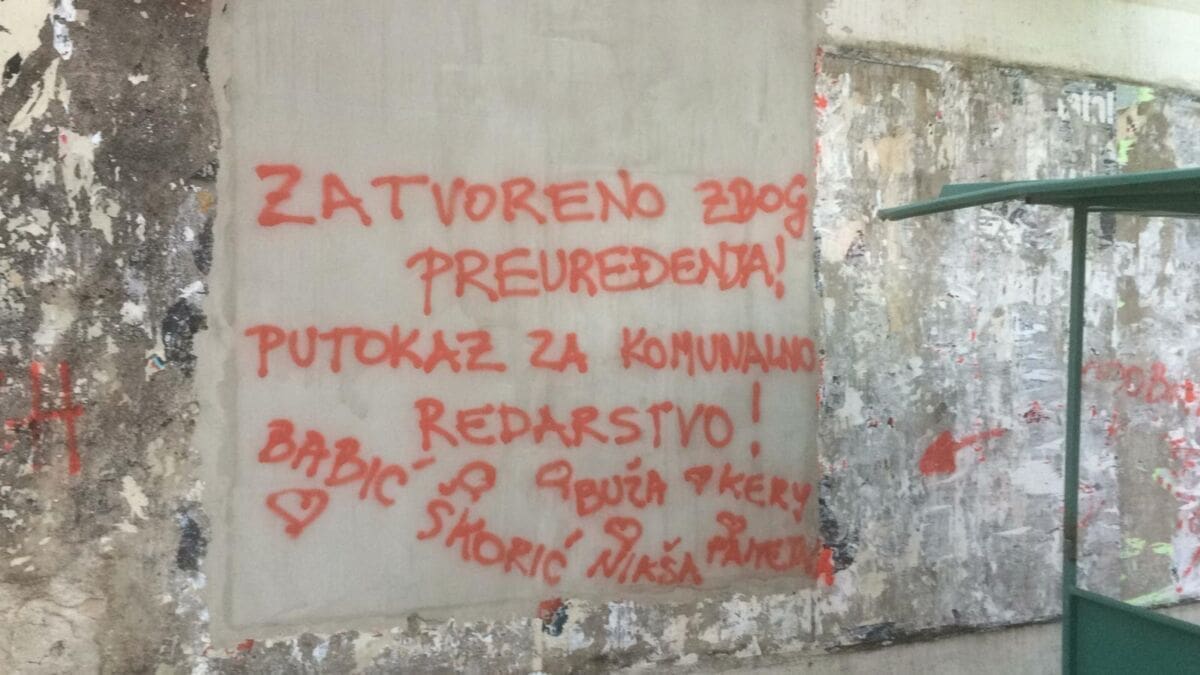 ZATVORENO ZBOG
PREUREĐENJA!
PUTOKAZ ZA KOMUNALNO
REDARSTVO!
BABIĆ BUŽA KERY
ŠKORIĆ NIKŠA